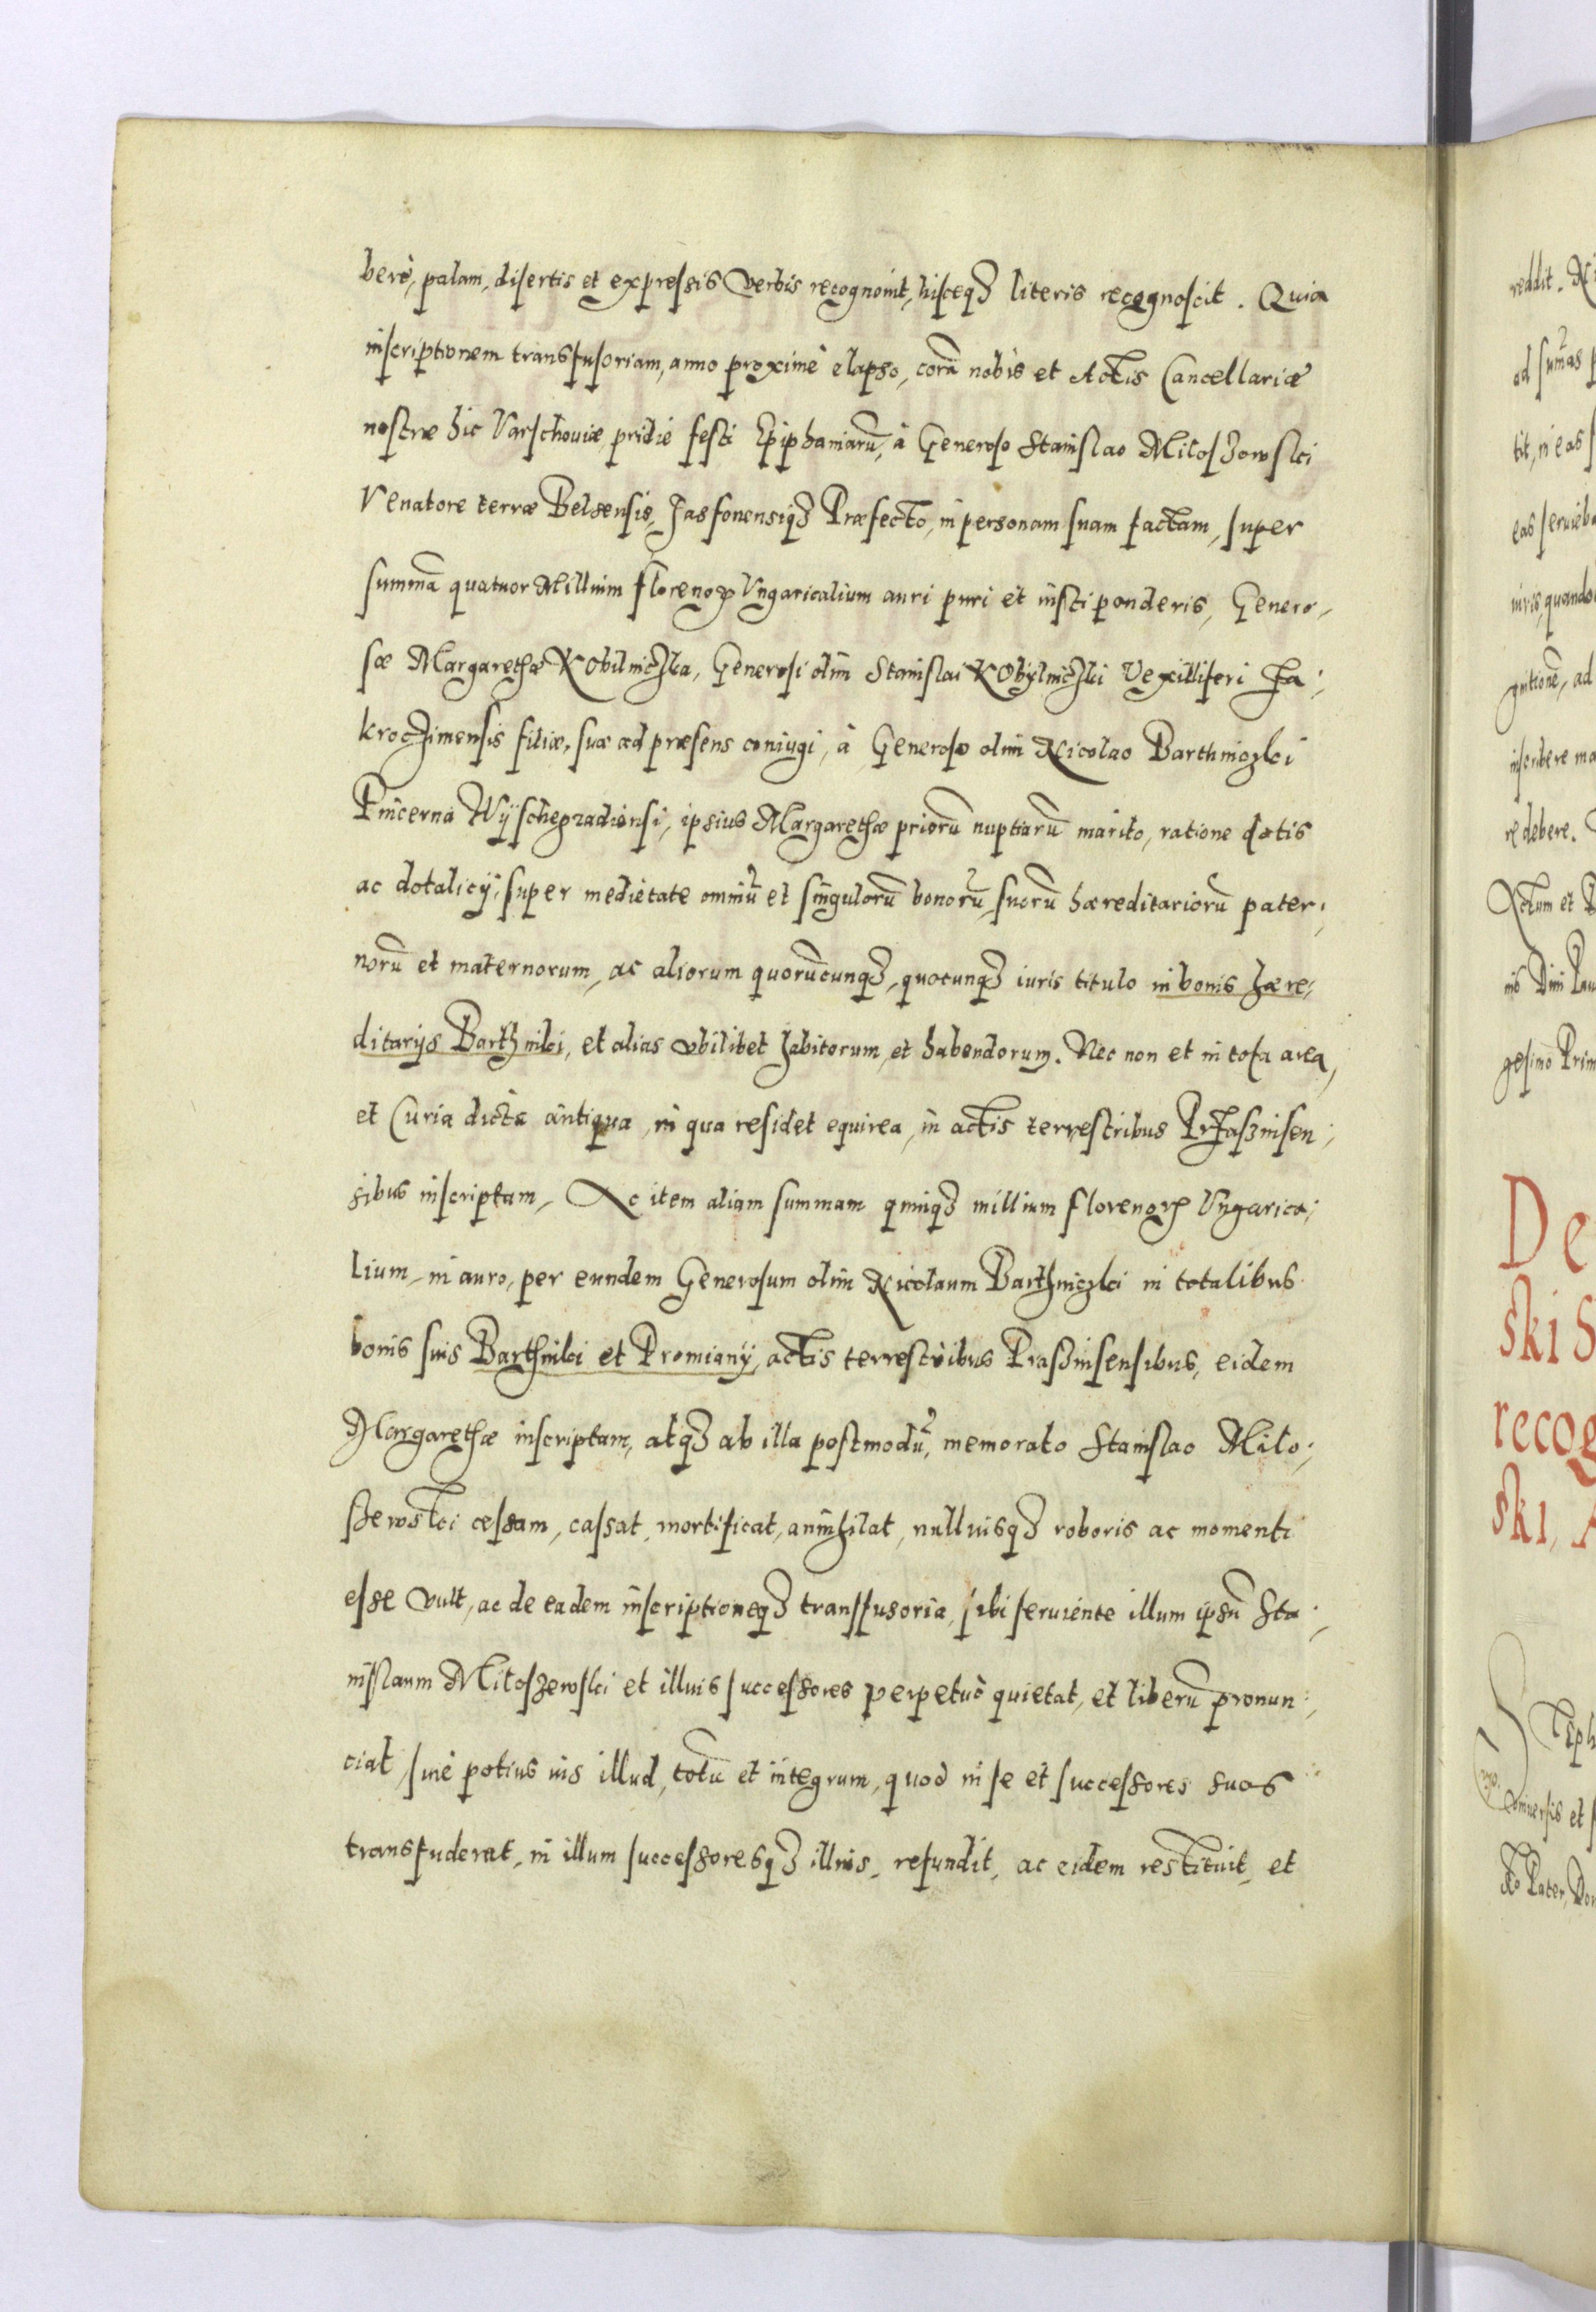 berè, palam, disertis et expressis verbis recognovit, hisceq3 literis recognoscit. Quia
inscriptionem transfusoriam, anno proximè elapso, corā nobis et Actis Cancellariæ
nostræ hic Varschoviæ, pridie festi Epiphaniarū, à Generoso Stanislao Miloszowski
Venatore terræ Belzensis, Præfecto, in personam suam factam, super
summā quatuor Millium florenoꝝ Vngaricalium auri puri et iusti ponderis, Genero-
sæ Margarethæ Kobilniczka, Generosi olim Stanislai Kobylniczki Vexilliferi Za-
kroczimensis filiæ, suæ ad præsens coniugi, à Generoso olim Nicolao Barthniczki
Pincerna Wÿschegradiensi, ipsius Margarethæ priorū nuptiarū marito, ratione dotis
ac dotalicij, super medietate omniū et singulorū bonorū suorū hæreditariorū pater-
norū et maternorum, ac aliorum quorūcunq3, quocunq3 iuris titulo in bonis hære-
ditarijs Barthniki, et alias vbilibet habitorum, et habendorum. Nec non et in tota area,
et Curia dicta antiqua, in qua residet equirea, in actis terrestribus Przasznisen-
sibus inscriptam, Ac item aliam summam quinq3 millium florenoꝝ Vngarica-
lium, in auro, per eundem Generosum olim Nicolaum Barthniczki in totalibus
bonis suis Barthniki et Promianÿ, actis terrestribus Prasznisensibus, eidem
Margarethæ inscriptam, atq3 ab illa postmodū, memorato Stanislao Milo-
szewski cessam, cassat, mortificat, annihilat, nulliusq3 roboris ac momenti
esse vult, ac de eadem inscriptioneq3 transfusoria, sibi serviente illum ipsū Sta-
nislaum Miloszewski et illius successores perpetuò quietat, et liberū pronun-
ciat, sive potius ius illud, totū et integrum, quod in se et successores suos
transfuderat, in illum successoresq3 illius, refundit, ac eidem restituit, et
reddit.
ad sum̄as
tit, in eas
eas
iuris, quando
ad
inscribere
re debere.
Actum et
nis Dn̄i
gesimo Prim
De
ski S
recog
ski, A
vniversis et
Pater,